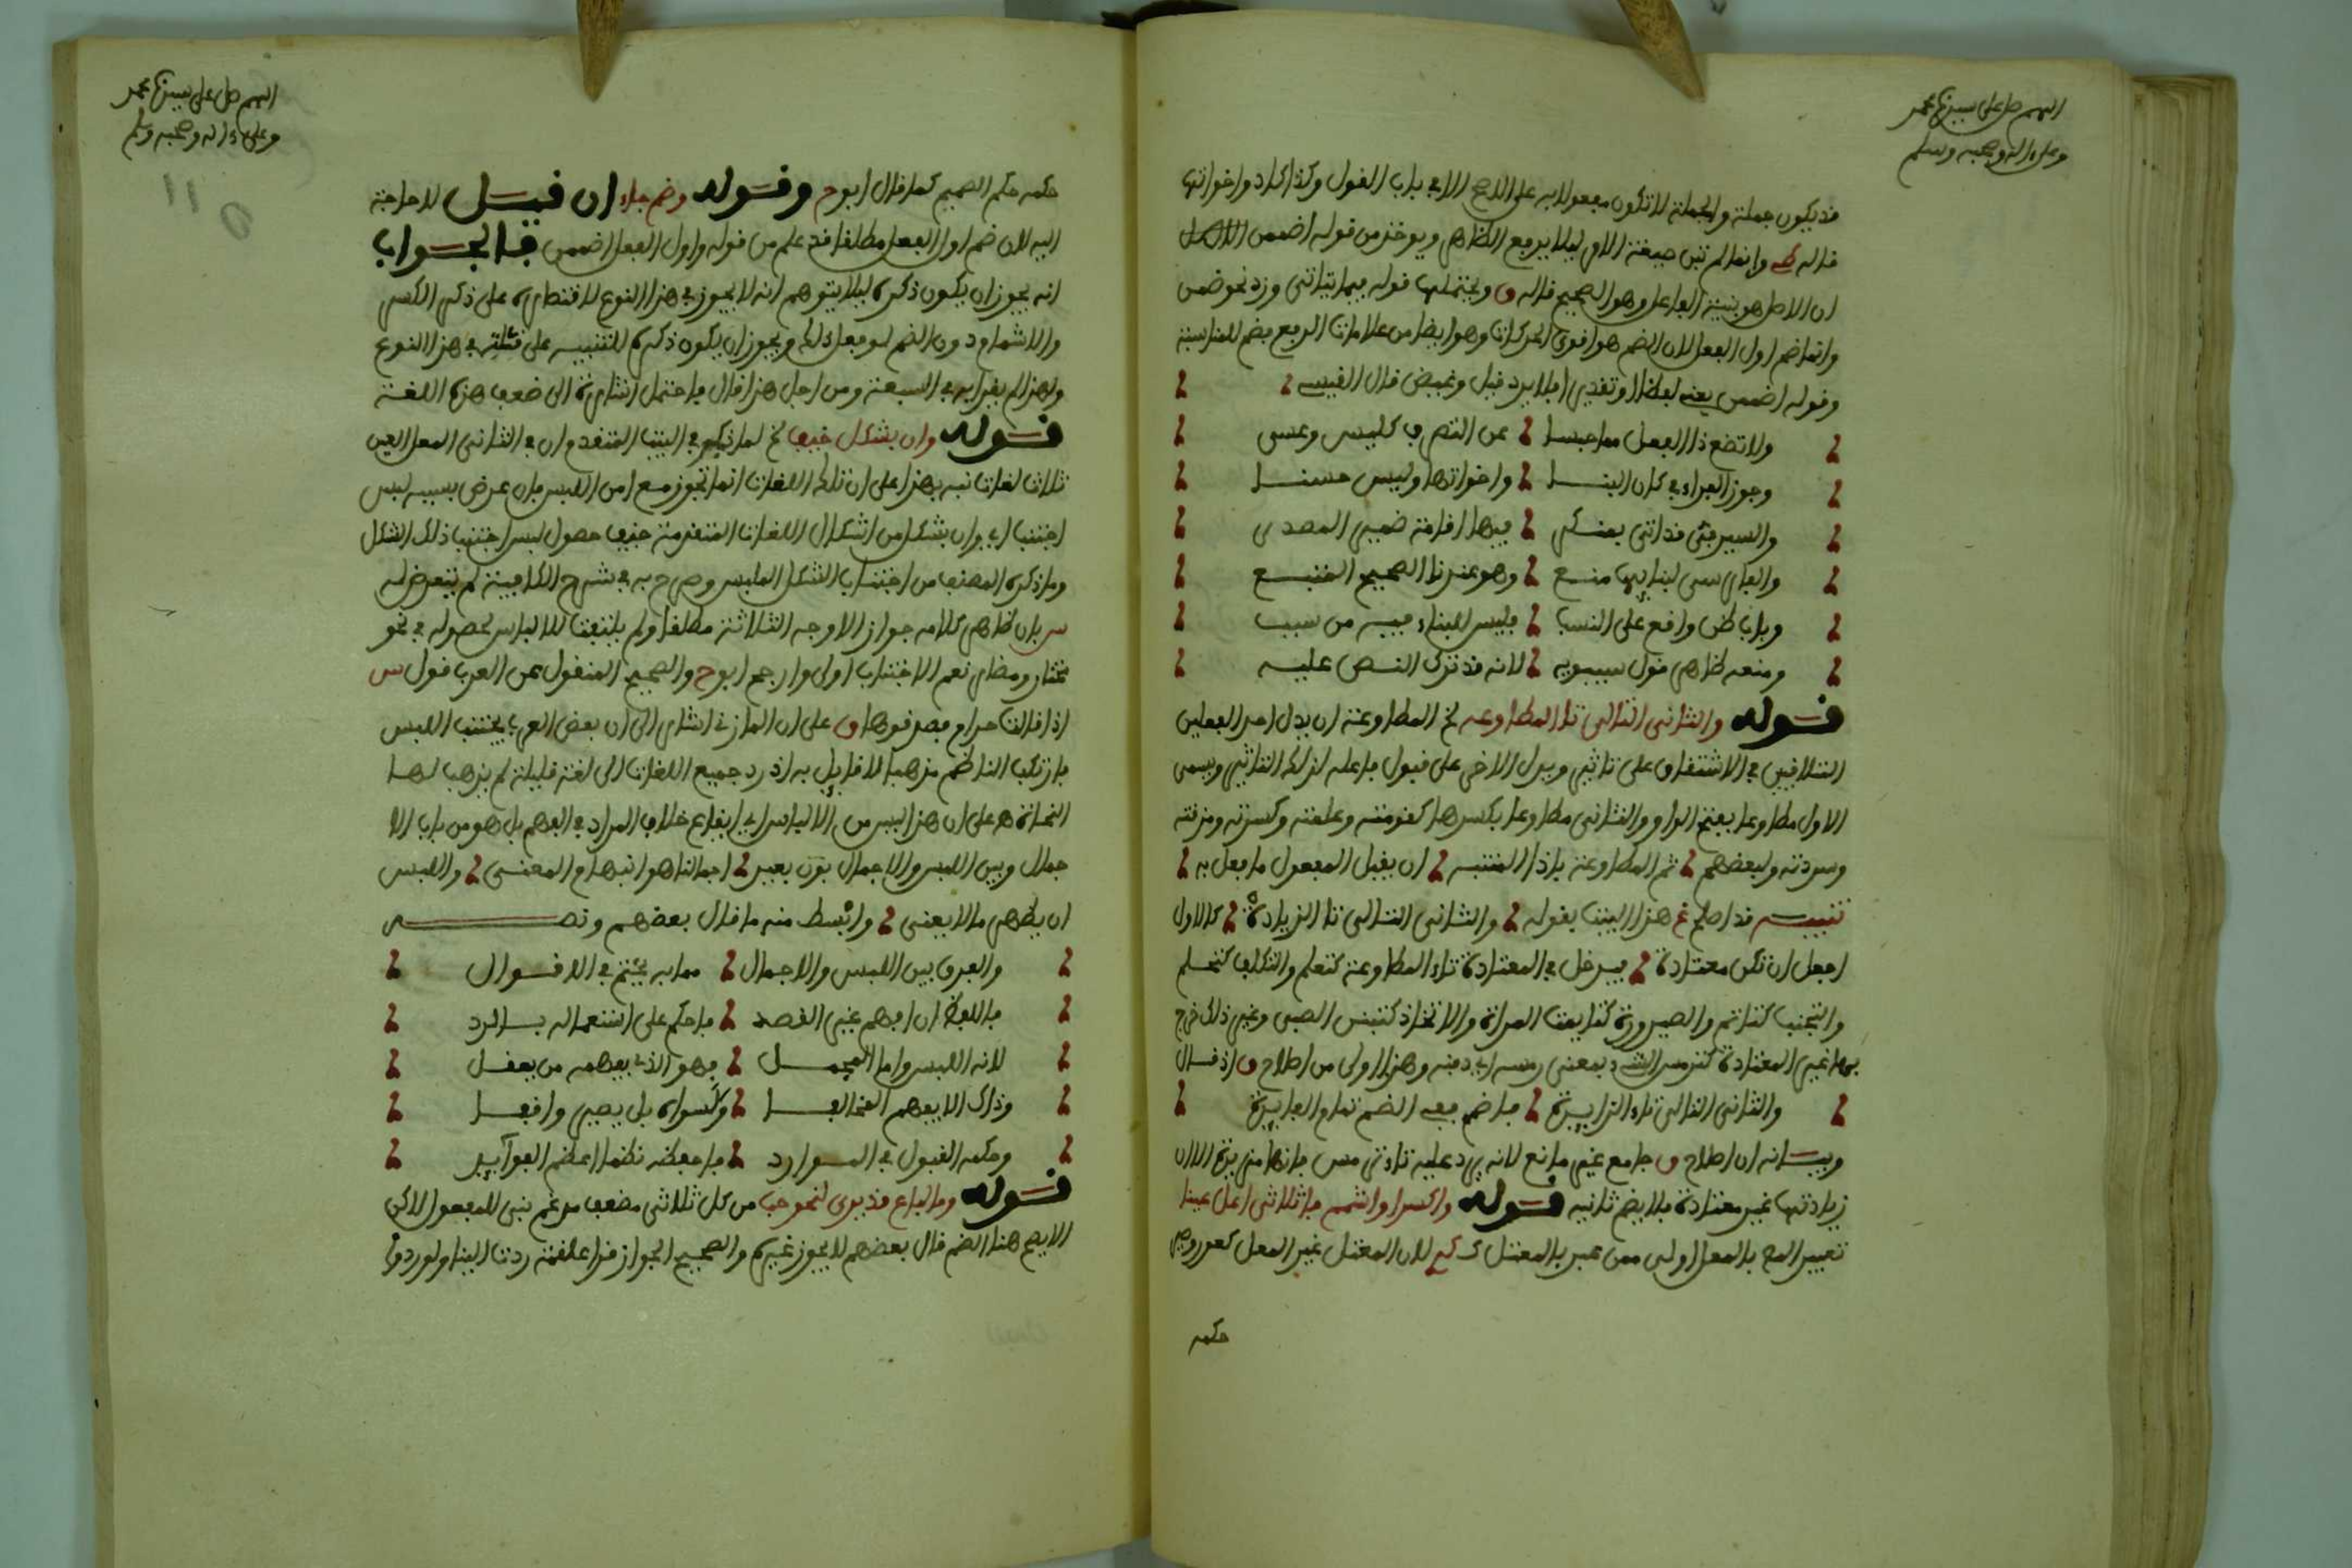 اللهم صل على سيدنا محمد
وعلى ءاله وصحبه وسلم
قد يكون جملة والجملة لا تكون مفعولا به على الاصح الا في باب القول وكذا كاد واخواتها
قاله وانما لم تبن صيغة الامر ليلا يرفع الظاهر ويوخذ من قوله اضممن
ان الاصل هو بنية الفاعل وهو الصحيح قاله ق ويحتملها قوله فيما ياتي وزد نحو ضمن
وانما ضم اول الفعل لان الضم هو اقوى الحركات وهو ايضا من علامات الرفع فضم للمناسبة
وقوله اضممن يعني لفظا او تقديرا فلا يرد قيل وغيض قال
ولا تضع ذا الفعل مما حبسا عن التصرف كليس وعسى
وجوز الفراء في كان البنا واخواتها وليس حسنا
والسيرفي قد اتى بعنكر فيها اقامة ضمير المصدر
والفارسي لبنايها منع وهو عندنا الصحيح المتبع
وباب ظن واقع على النسب فليس للبناء فيه من سبب
ومنعه ظاهر قول سيبويه لانه قد ترك النص عليه
قوله والثاني التالي تا المطاوعه لخ المطاوعة ان يدل احد الفعلين
المتلاقيين في الاشتقاق على تاثير ويدل الاخر على قبول فاعله لذلك التاثير ويسمى
الاول مطاوعا بفتح الواو والثاني مطاوعا بكسرها كقومته وعلمته وكسرته ومزقته
وسردته ولبعضهم ثم المطاوعة ياذا المنتبه ان يقبل المفعول ما فعل به
تنبيه قد اصلح غ هذا البيت بقوله والثاني التالي تا الزيادة كالاول
اجعل ان تكن معتادة فيدخل في المعتادة تاء المطاوعة كتعلم والتكلف كتحلم
والتجنب كتاثم والصيرورة كتايمت المراة والاتخاذ كتبنى الصبي وغير ذلك خرج
بها غير المعتادة كترمس الشيء بمعنى رمسه اي دفنه وهذا اولى من اصلاح ق اذ قال
والثاني التالي تاء الزايدة فاضم معه الضم تمام الفايدة
وبيانه ان اصلاح ق جامع غير مانع لانه يرد عليه تاء ترمس فانها مزيدة الا ان
زيادتها غير معتادة فلا يضم ثانيه قوله واكسر او اشمم فا ثلاثي اعل عينا
تعبير المص بالمعل اولى ممن عبر بالمعتل لان المعتل غير المعل كعور وصيد
حكمه
اللهم صل على سيدنا محمد
وعلى ءاله وصحبه وسلم
110
حكمه حكم الصحيح كما قال ابوح وقوله وضم جاء ان قيل لا حاجة
اليه لان ضم اول الفعل مطلقا قد علم من قوله فاول الفعل اضممن فالجواب
انه يجوز ان يكون ذكره ليلا يتوهم انه لا يجوز في هذا النوع لاقتصاره على ذكر الكسر
والاشمام دون الضم لو فعل ذلك ويجوز ان يكون ذكره للتنبيه على قلته في هذا النوع
ولهذا لم يقرا به في السبعة ومن اجل هذا قال فاحتمل اشارة الى ضعف هذه اللغة
قوله وان بشكل خيف لخ لما ذكر في البيت المتقدم ان في الثاني المعل العين
ثلاث لغات نبه بهذا على ان تلك اللغات انما تجوز مع امن اللبس فان عرض بسببه لبس
اجتنب اي وان بشكل من اشكال اللغات المتقدمة خيف حصول لبس اجتنب ذلك الشكل
وما ذكره المصنف من اجتناب الشكل الملبس وصرح به في شرح الكافية لم يتعرض له
س بان ظاهر كلامه جواز الاوجه الثلاثة مطلقا ولم يلتفت للالباس لحصوله في نحو
مختار ومضار نعم الاجتناب اولى وارجح ابوح والصحيح المنقول عن العرب قول س
اذا قالت حرام فصدقوها ق على ان المازني اشار الى ان بعض العرب يجتنب اللبس
فارتكب الناظم مذهبا لا قايل به اذ رد جميع اللغات الى لغة قليلة لم يذهب لها
النحاة ه على ان هذا ليس من الالباس اي ايقاع خلاف المراد في الفهم بل هو من باب الا
جمال وبين اللبس والاجمال بون بعيد اجمالنا هو انبهام المعنى واللبس
ان يظهر ما لا يعنى وابسط منه ما قال بعضهم ونصه
والفرق بين اللبس والاجمال مما به يهتم في الاقوال
فاللفظ ان افهم غير القصد فاحكم على استعماله بالرد
لانه اللبس واما المجمل فهو الذي يفهمه من يعقل
وذاك لا يفهم المخالفا وسواه بل يصير واقفا
وحكمه القبول في الموارد فاحفظه نظما اعظم الفوايد
قوله وما لباع قد يرى لنحو حب من كل ثلاثي مضعف مدغم بني للمفعول لكن
الافصح هنا الضم قال بعضهم لا يجوز غيره والصحيح الجواز قرا علقمة ردت الينا ولو ردوا